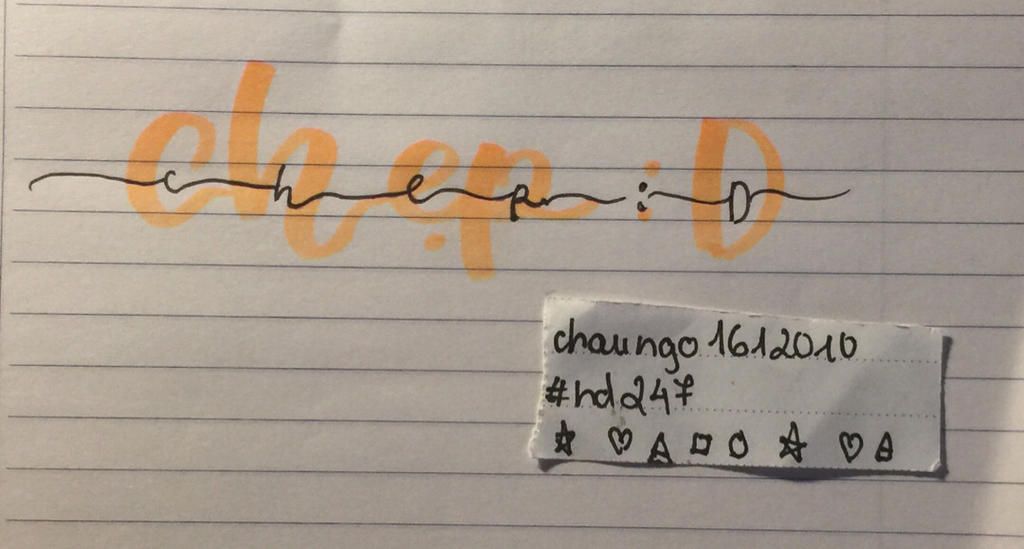 chẹp :D
chep :D
chaungo 1612010
#hd247